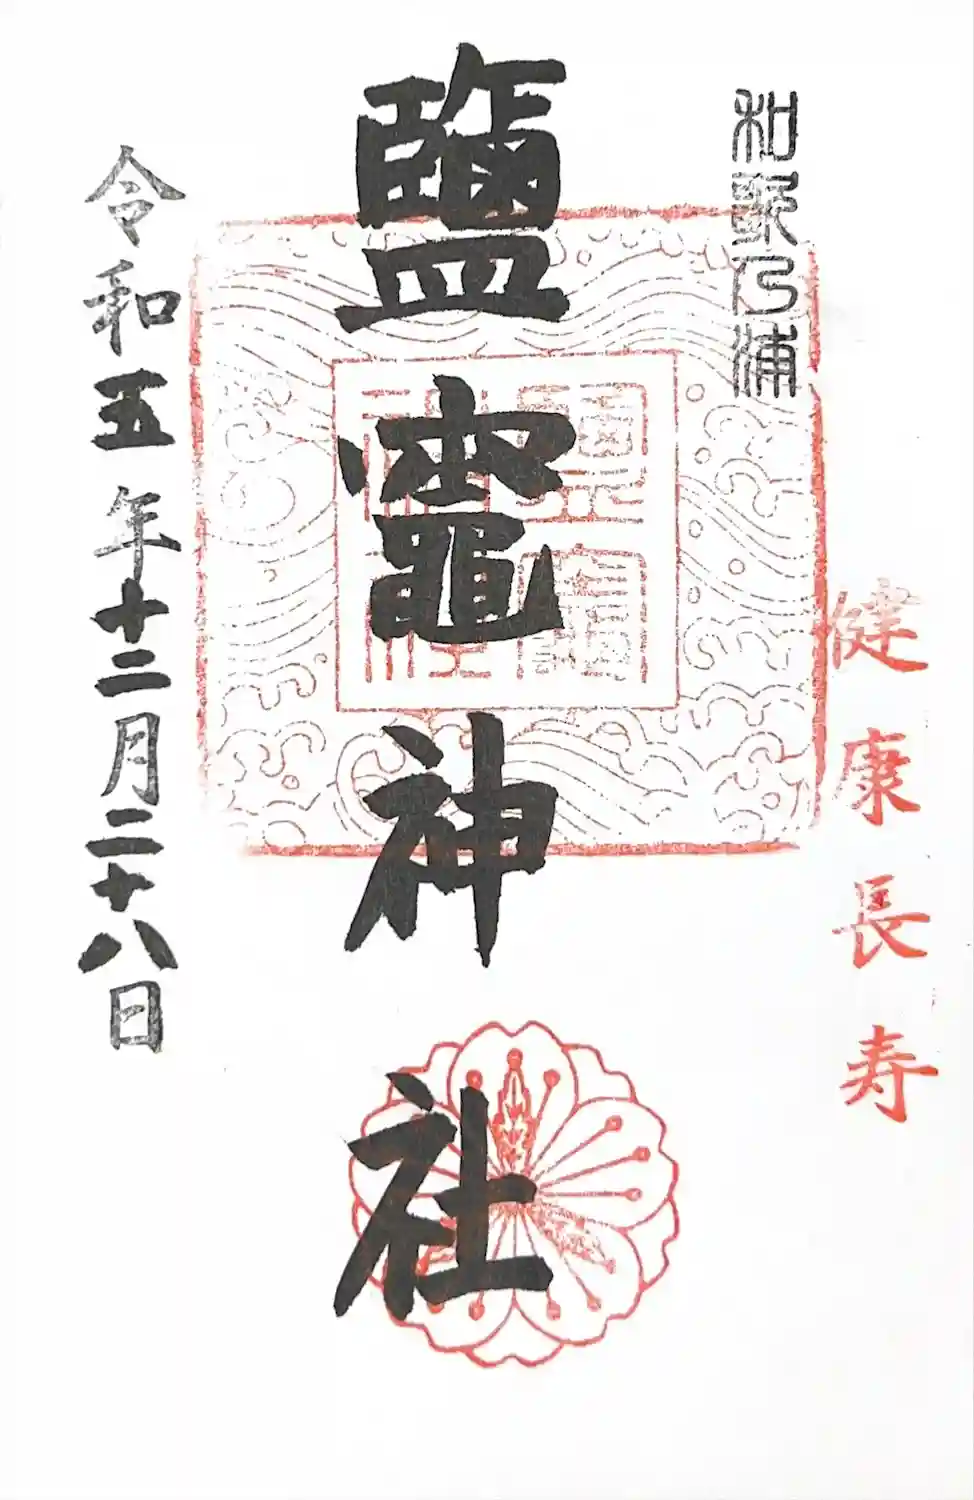 健康長寿
和歌乃浦
鹽竈神社
令和五年十二月二十八日